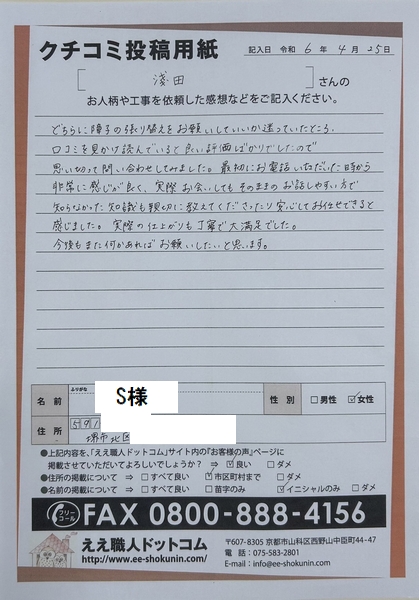 クチコミ投稿用紙
記入日 令和 6 年 4 月 25 日
浅田 さんの
お人柄や工事を依頼した感想などをご記入ください。
どちらに障子の張り替えをお願いしていいか迷っていたところ、
口コミを見かけ読んでいると良い評価ばかりでしたので
思い切って問い合わせしてみました。最初にお電話いただいた時から
非常に感じが良く、実際お会いしてもそのままのお話しやすい方で
知らなかった知識も親切に教えてくださったり安心してお任せできると
感じました。実際の仕上がりも丁寧で大満足でした。
今後もまた何かあればお願いしたいと思います。
ふりがな
名前 S様 性別 □男性 ☑女性
住所 591
堺市北区
●上記内容を、「ええ職人ドットコム」サイト内の『お客様の声』ページに
掲載させていただいてよろしいでしょうか？ ⇒ ☑良い □ダメ
●住所の掲載について ⇒ □すべて良い ☑市区町村まで □ダメ
●名前の掲載について ⇒ □すべて良い □苗字のみ ☑イニシャルのみ □ダメ
フリーコール FAX 0800-888-4156
ええ職人ドットコム
http://www.ee-shokunin.com/
〒607-8305 京都市山科区西野山中臣町44-47
電話：075-583-2801
E-mail：info@ee-shokunin.com